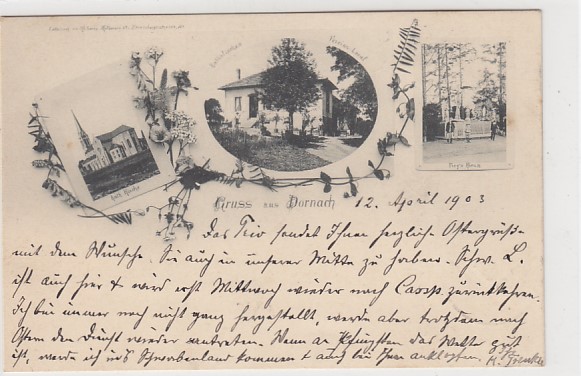 Kath. Kirche
Gruss aus Dornach
12. April 1903
Das Trio sendet Ihnen herzliche Ostergrüße
mit dem Wunsche, Sie auch in unserer Mitte zu haben. Schw. L.
ist auch hier & wird erst Mittwoch wieder nach zurückkehren.
Ich bin immer noch nicht ganz hergestellt, werde aber trotzdem nach
Ostern den Dienst wieder antreten. Wenn an Pfingsten das Wetter gut
ist, werde ich ins Schwabenland kommen & auch bei Ihnen anklopfen.